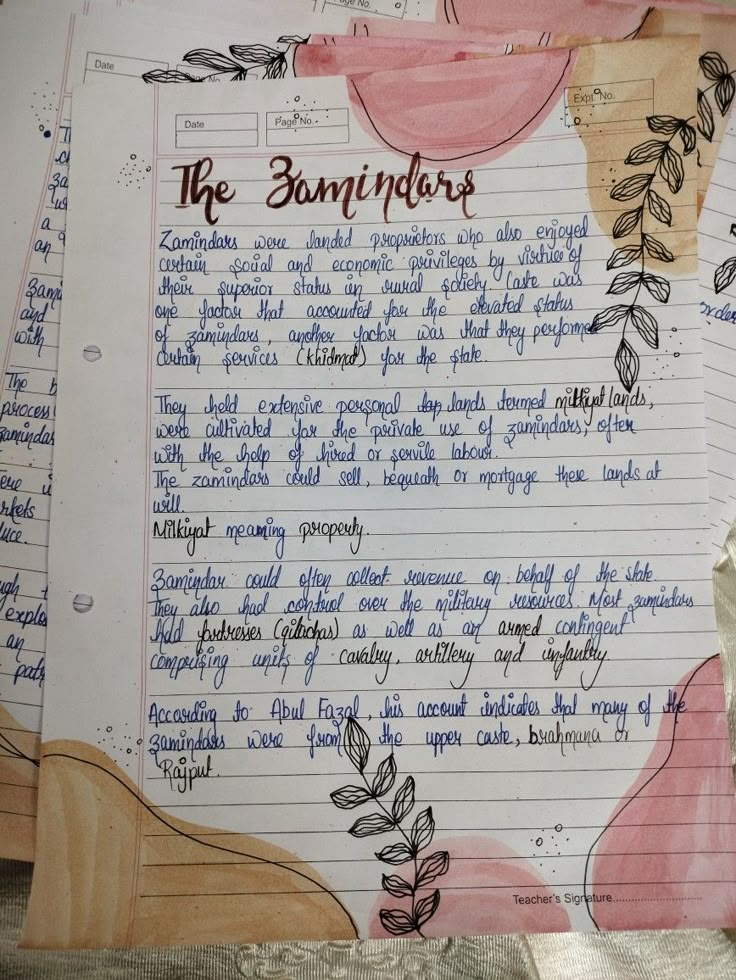 Page No.
Date
Page No.
Date
Page No.
Expt. No.
The Zamindars
Zamindars were landed proprietors who also enjoyed
certain social and economic privileges by virtue of
their superior status in rural society. Caste was
one factor that accounted for the elevated status
of zamindars, another factor was that they performed
certain services (khidmat) for the state.
They held extensive personal lands termed milkiyat lands,
were cultivated for the private use of zamindars, often
with the help of hired or servile labour.
The zamindars could sell, bequeath or mortgage these lands at
will.
Milkiyat meaning property.
Zamindar could often collect revenue on behalf of the state.
They also had control over the military resources. Most zamindars
had fortresses (qilachas) as well as an armed contingent
comprising units of cavalry, artillery and infantry.
According to Abul Fazal, his account indicates that many of the
zamindars were from the upper caste, brahmana or
Rajput.
Teacher's Signature